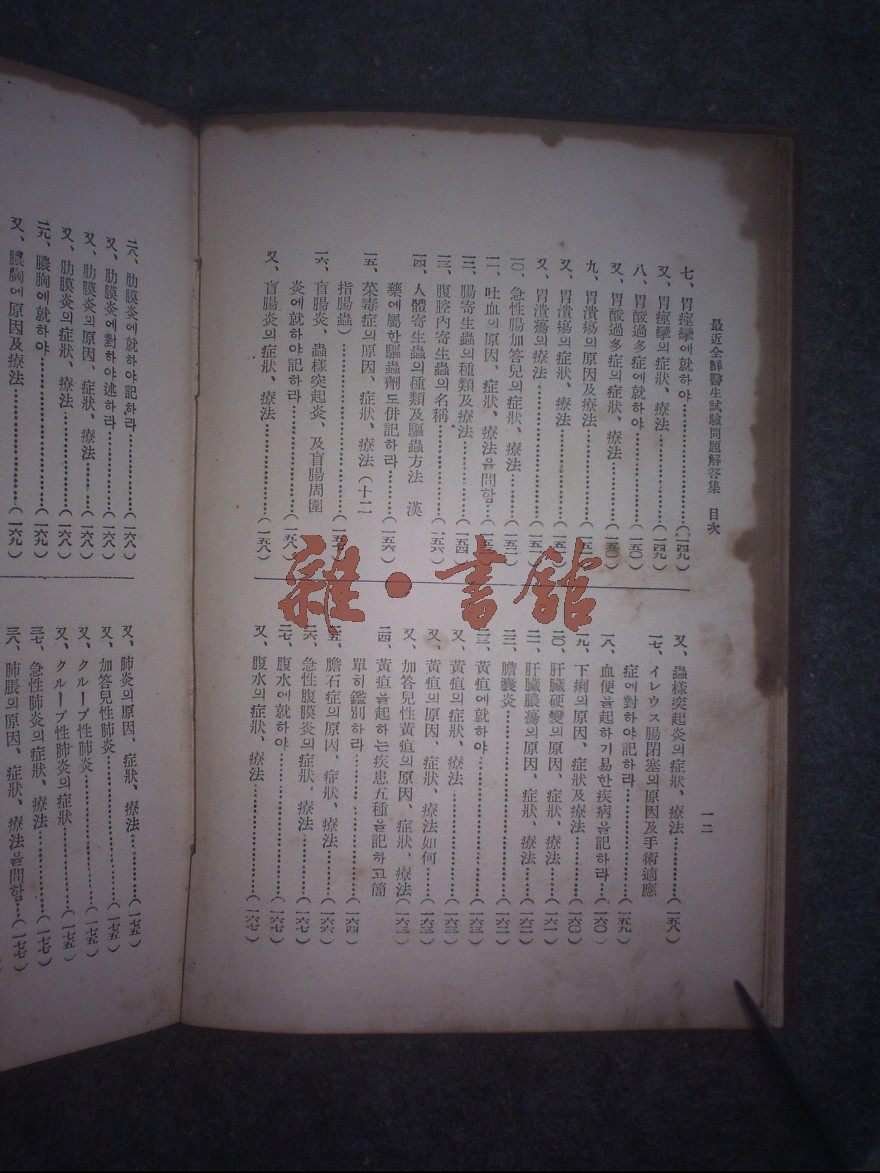 最近全鮮醫生試驗問題解答集 目次
一二
七、胃痙攣에就하야………(一四九)
又、胃痙攣의症狀、療法………(一四九)
八、胃酸過多症에就하야………(一五〇)
又、胃酸過多症의症狀、療法………(一五〇)
九、胃潰瘍의原因及療法………(一五
又、胃潰瘍의症狀、療法………(一五
又、胃潰瘍의療法………(一五
一〇、急性腸加答兒의症狀、療法………(一五
一一、吐血의原因、症狀、療法을問함…(一五
一二、腸寄生蟲의種類及療法………(一五四)
一三、腹腔內寄生蟲의名稱………(一五六)
一四、人體寄生蟲의種類及驅蟲方法 漢
藥에屬한驅蟲劑도併記하라………(一五六)
一五、菜毒症의原因、症狀、療法(十二
指腸蟲)………(一五
一六、盲腸炎、蟲樣突起炎、及盲腸周圍
炎에就하야記하라………(一五八)
又、盲腸炎의症狀、療法………(一五八)
又、蟲樣突起炎의症狀、療法………(一五八)
一七、イレウス腸閉塞의原因及手術適應
症에對하야記하라………(一五九)
一八、血便을起하기易한疾病을記하라…(一六〇)
一九、下痢의原因、症狀及療法………(一六〇)
二〇、肝臟硬變의原因、症狀、療法………(一六一)
二一、肝臟膿瘍의原因、症狀、療法………(一六二)
二二、膽囊炎………(一六二)
二三、黃疸에就하야………(一六三)
又、黃疸의症狀、療法………(一六三)
又、黃疸의原因、症狀、療法如何………(一六三)
又、加答兒性黃疸의原因、症狀、療法(一六三)
二四、黃疸을起하는疾患五種을記하고簡
單히鑑別하라………(一六四)
二五、膽石症의原因、症狀、療法………(一六六)
二六、急性腹膜炎의症狀、療法………(一六七)
二七、腹水에就하야………(一六七)
又、腹水의症狀、療法………(一六七)
二八、肋膜炎에就하야記하라………(一六八)
又、肋膜炎에對하야述하라………(一六八)
又、肋膜炎의原因、症狀、療法……(一六八)
又、肋膜炎의症狀、療法………(一六八)
二九、膿胸에就하야………(一六九)
又、膿胸에原因及療法………(一六九)
又、肺炎의原因、症狀、療法………(一七五)
又、加答兒性肺炎………(一七五)
又、クループ性肺炎………(一七五)
又、クループ性肺炎의症狀………(一七五)
三七、急性肺炎의症狀、療法………(一七七)
三八、肺脹의原因、症狀、療法을問함…(一七七)
雜·書館